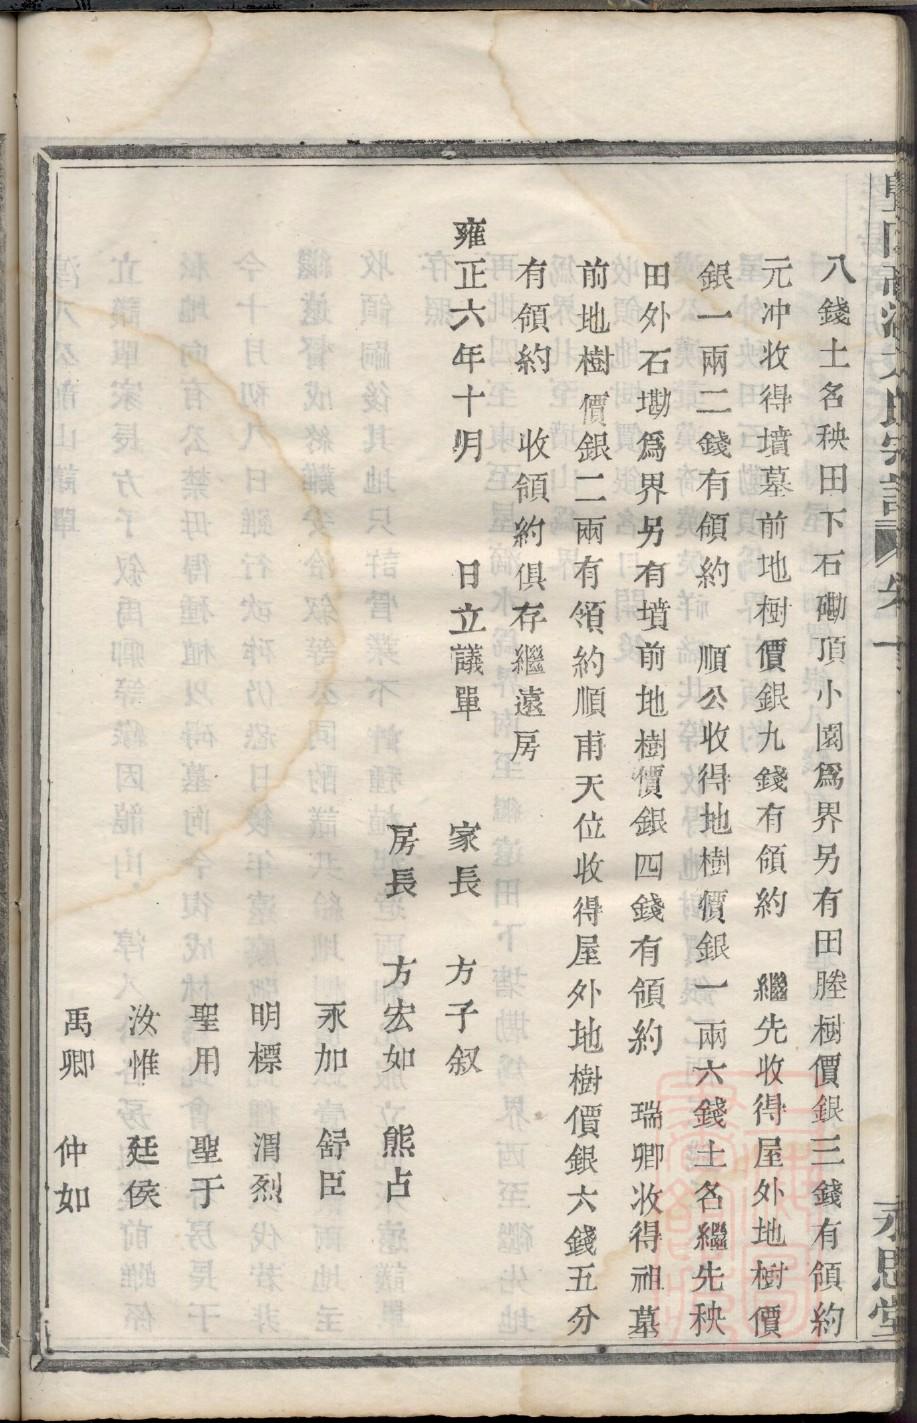 八錢土名秧田下石磡頂小園爲界另有田塍樹價銀三錢有領約
元冲收得墳墓前地樹價銀九錢有領約 繼先收得屋外地樹價
銀一兩二錢有領約 順公收得地樹價銀一兩六錢土名繼先秧
田外石墈爲界另有墳前地樹價銀四錢有領約 瑞卿收得祖墓
前地樹價銀二兩有領約順甫天位收得屋外地樹價銀六錢五分
有領約 收領約俱存繼遠房
雍正六年十月 日立議單 家長 方子叙
房長 方宏如 熊占
永加 舒臣
明標 渭烈
聖用 聖于
汝惟 廷侯
禹卿 仲如
永思堂